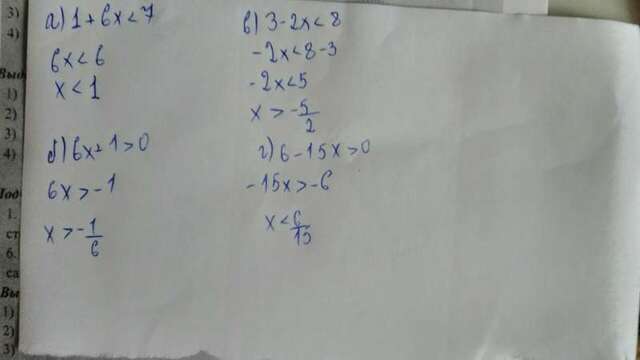 а) 1 + 6x < 7
6x < 6
x < 1
б) 6x + 1 > 0
6x > -1
x > -1/6
в) 3 - 2x < 8
-2x < 8 - 3
-2x < 5
x > -5/2
г) 6 - 15x > 0
-15x > -6
x < 6/15
3)
4)
1)
2)
3)
4)
1.
ст
6.
са
Вы
1)
2)
3)